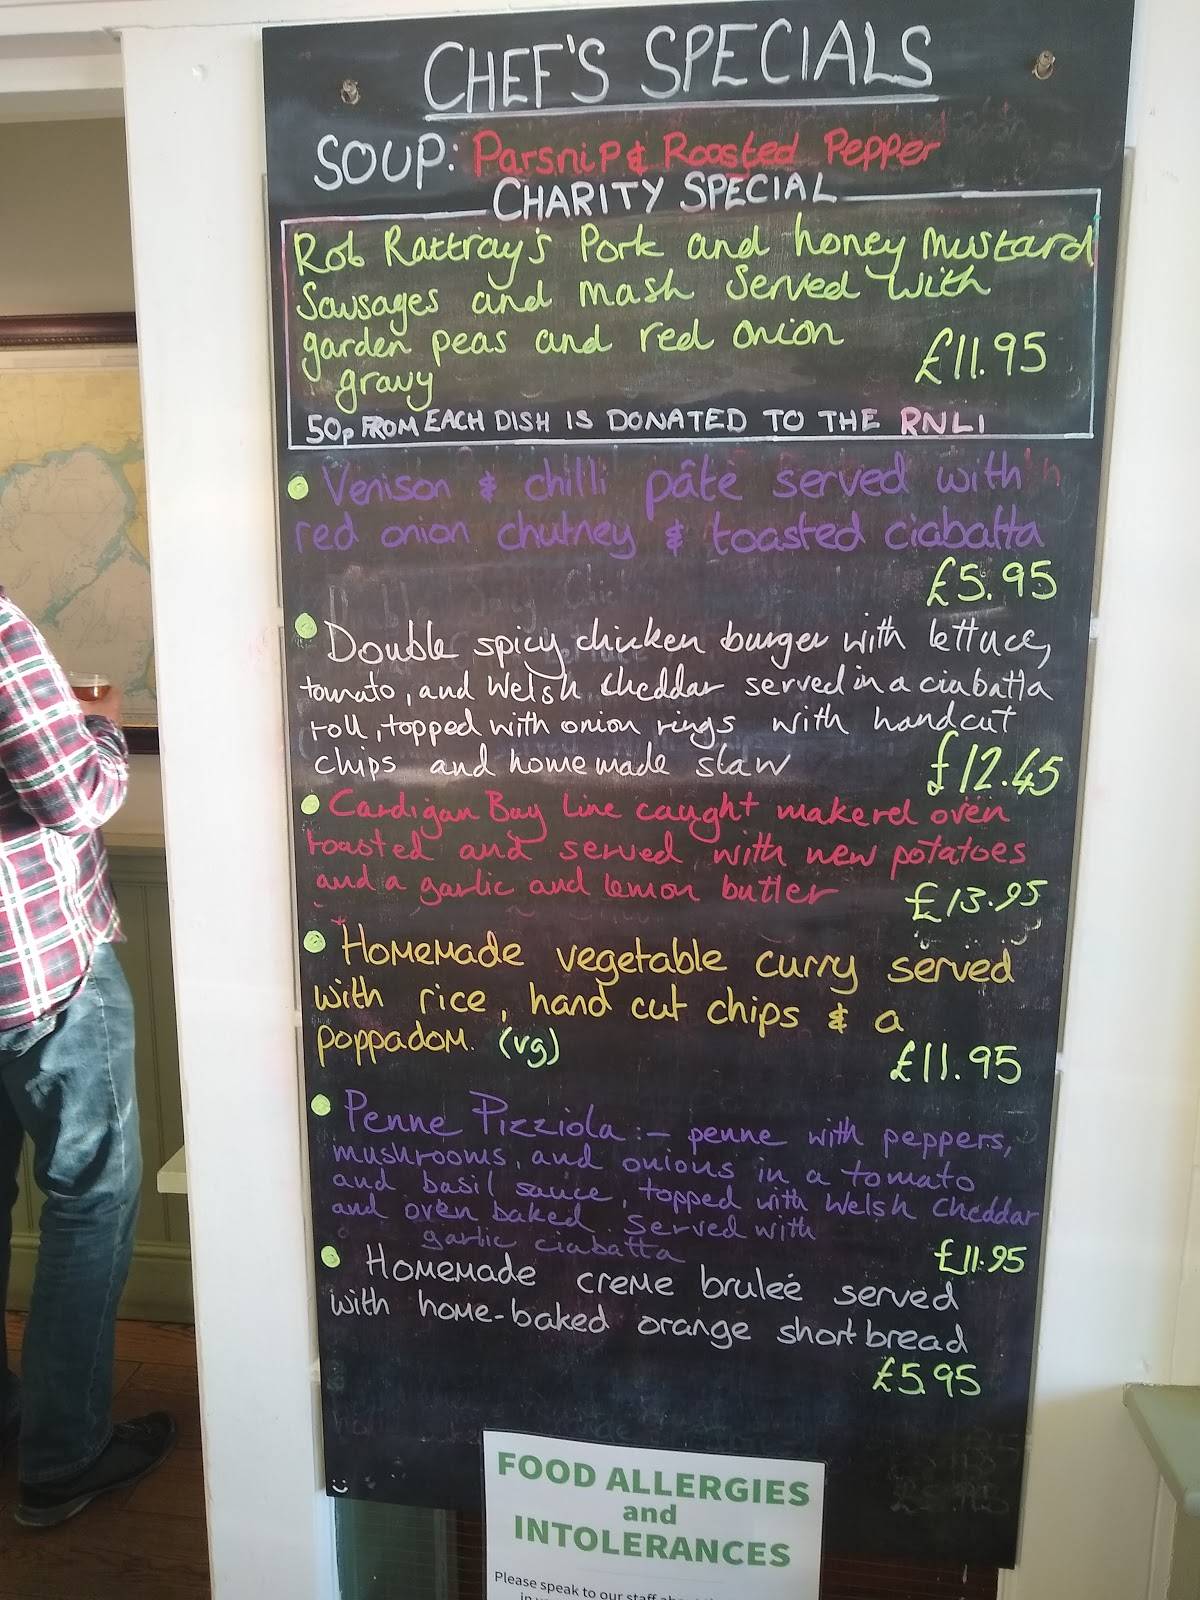 CHEF'S SPECIALS
SOUP: Parsnip & Roasted Pepper
CHARITY SPECIAL
Rob Rattray's Pork and honey mustard
Sausages and mash served with
garden peas and red onion
gravy
£11.95
50p FROM EACH DISH IS DONATED TO THE RNLI
• Venison & chilli pâte served with
red onion chutney & toasted ciabatta
£5.95
• Double spicy chicken burger with lettuce,
tomato, and Welsh Cheddar served in a ciabatta
roll, topped with onion rings with handcut
chips and homemade slaw
£12.45
• Cardigan Bay Line caught makerel oven
roasted and served with new potatoes
and a garlic and lemon butter
£13.95
• Homemade vegetable curry served
with rice, hand cut chips & a
poppadom. (vg)
£11.95
• Penne Pizziola:- penne with peppers,
mushrooms, and onions in a tomato
and basil sauce, topped with Welsh Cheddar
and oven baked. Served with
garlic ciabatta
£11.95
• Homemade creme bruleé served
with home-baked orange shortbread
£5.95
FOOD ALLERGIES
and
INTOLERANCES
Please speak to our staff